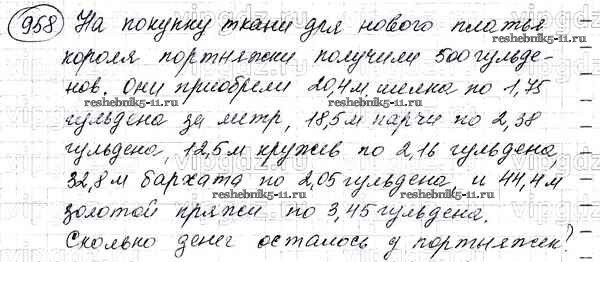 958 На покупку ткани для нового платья
короля портняжки получили 500 гульде-
нов. Они приобрели 20,4м шелка по 1,75
reshebnik5-11.ru reshebnik5-11.ru
гульдена за метр, 18,5м парчи по 2,38
гульдена, 12,5м кружев по 2,16 гульдена,
32,8м бархата по 2,05 гульдена, и 44,4м
reshebnik5-11.ru reshebnik5-11.ru
золотой пряжи по 3,45 гульдена.
Сколько денег осталось у портняжек?